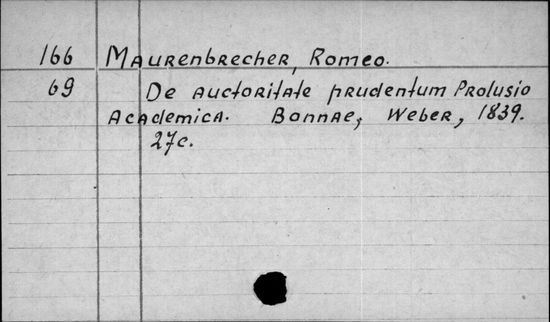 166 Maurenbrecher, Romeo.
69 De auctoritate prudentum Prolusio
Academica. Bonnae, Weber, 1839.
27c.